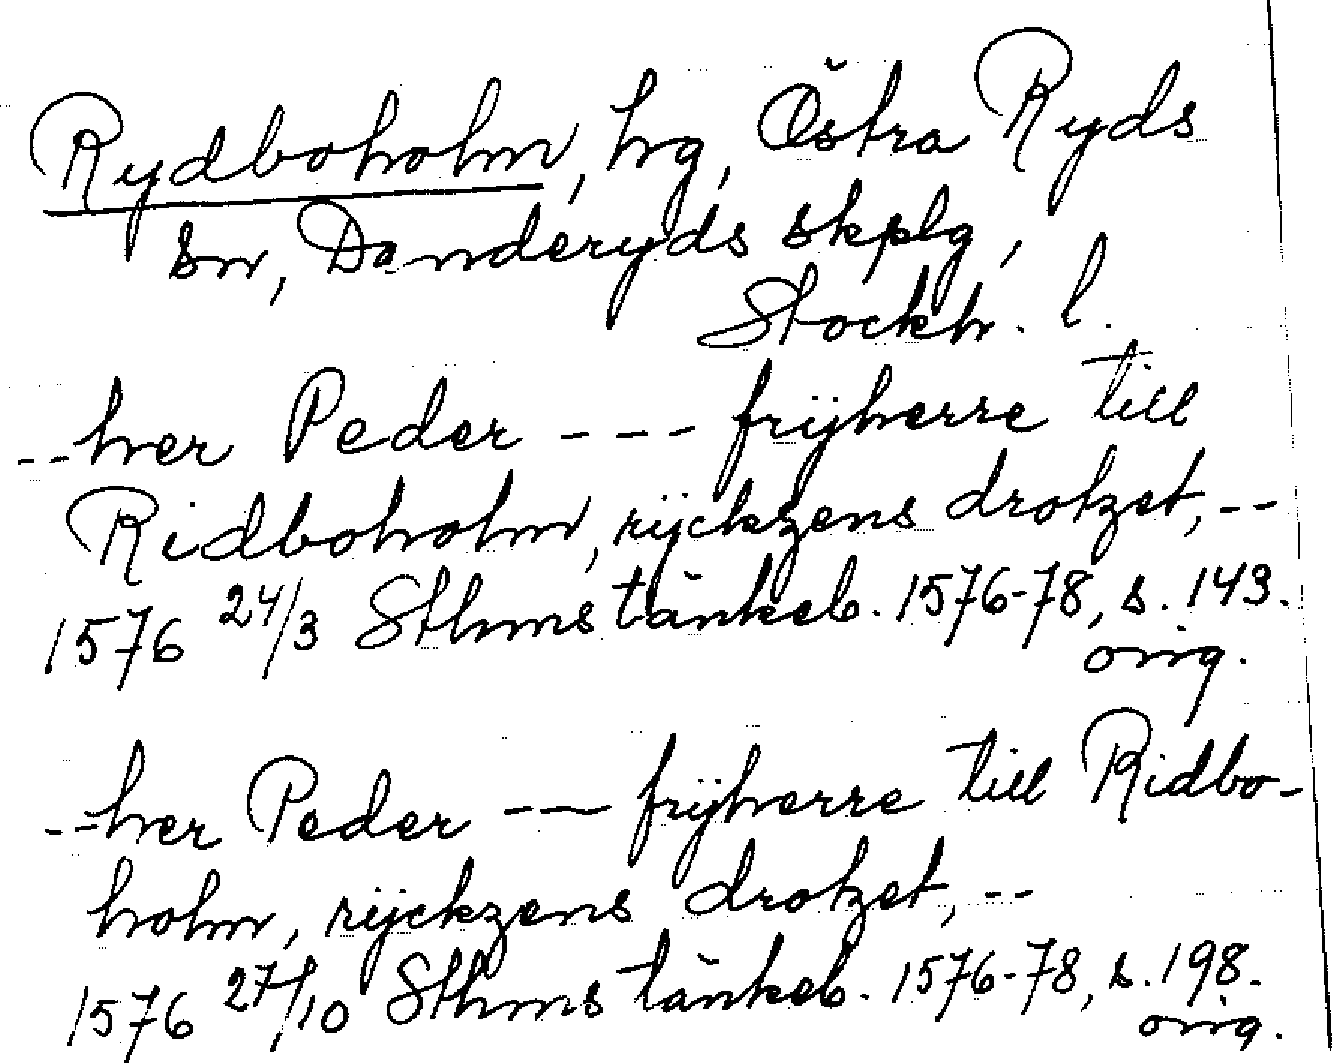 Rydboholm, hg, Östra Ryds
sn, Danderyds skplg,
Stockh. l.
--her Peder --- frijherre till
Ridboholm, rijckzens drotzet, --
1576 24/3 Sthms tänkeb. 1576-78, s. 143.
orig.
--her Peder --- frijherre till Ridbo-
holm, rijckzens drotzet, --
1576 27/10 Sthms tänkeb. 1576-78, s. 198.
orig.